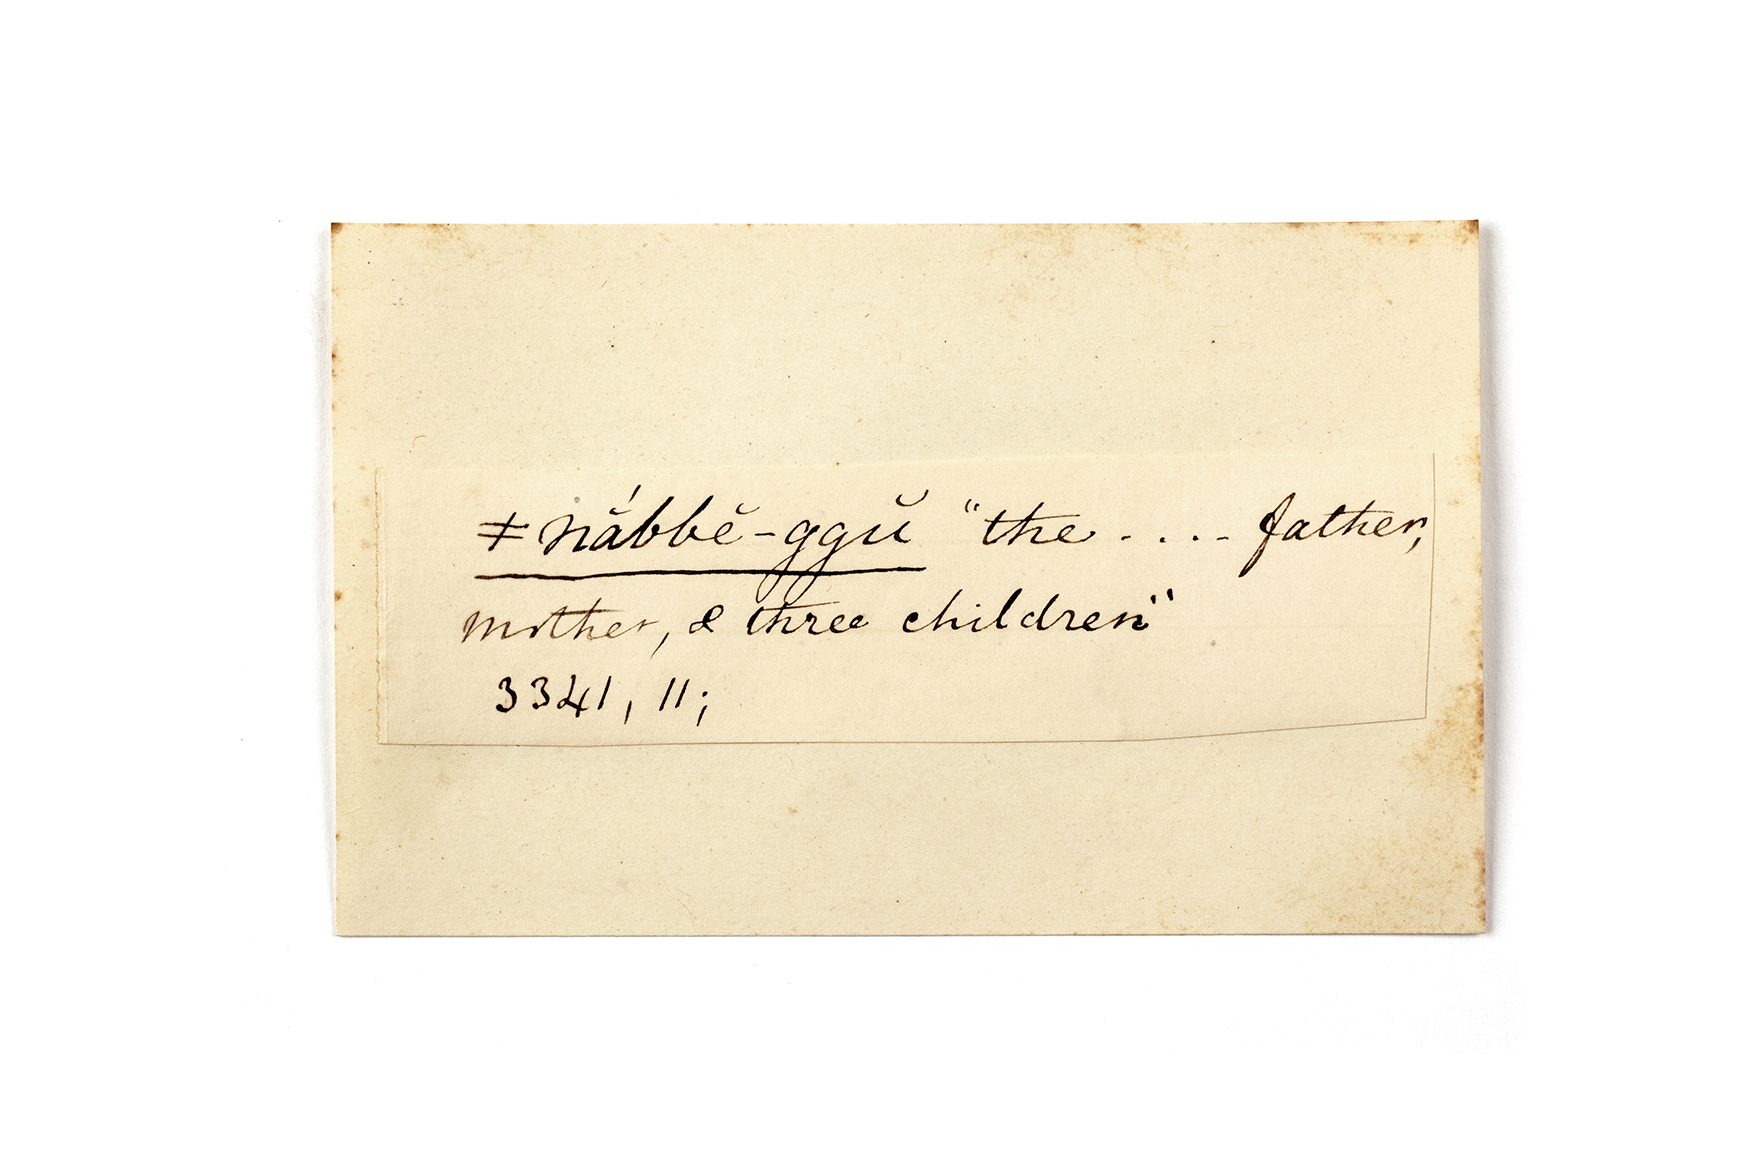 ǂnắbbĕ-ggŭ "the .... father,
mother, & three children"
3341, 11;